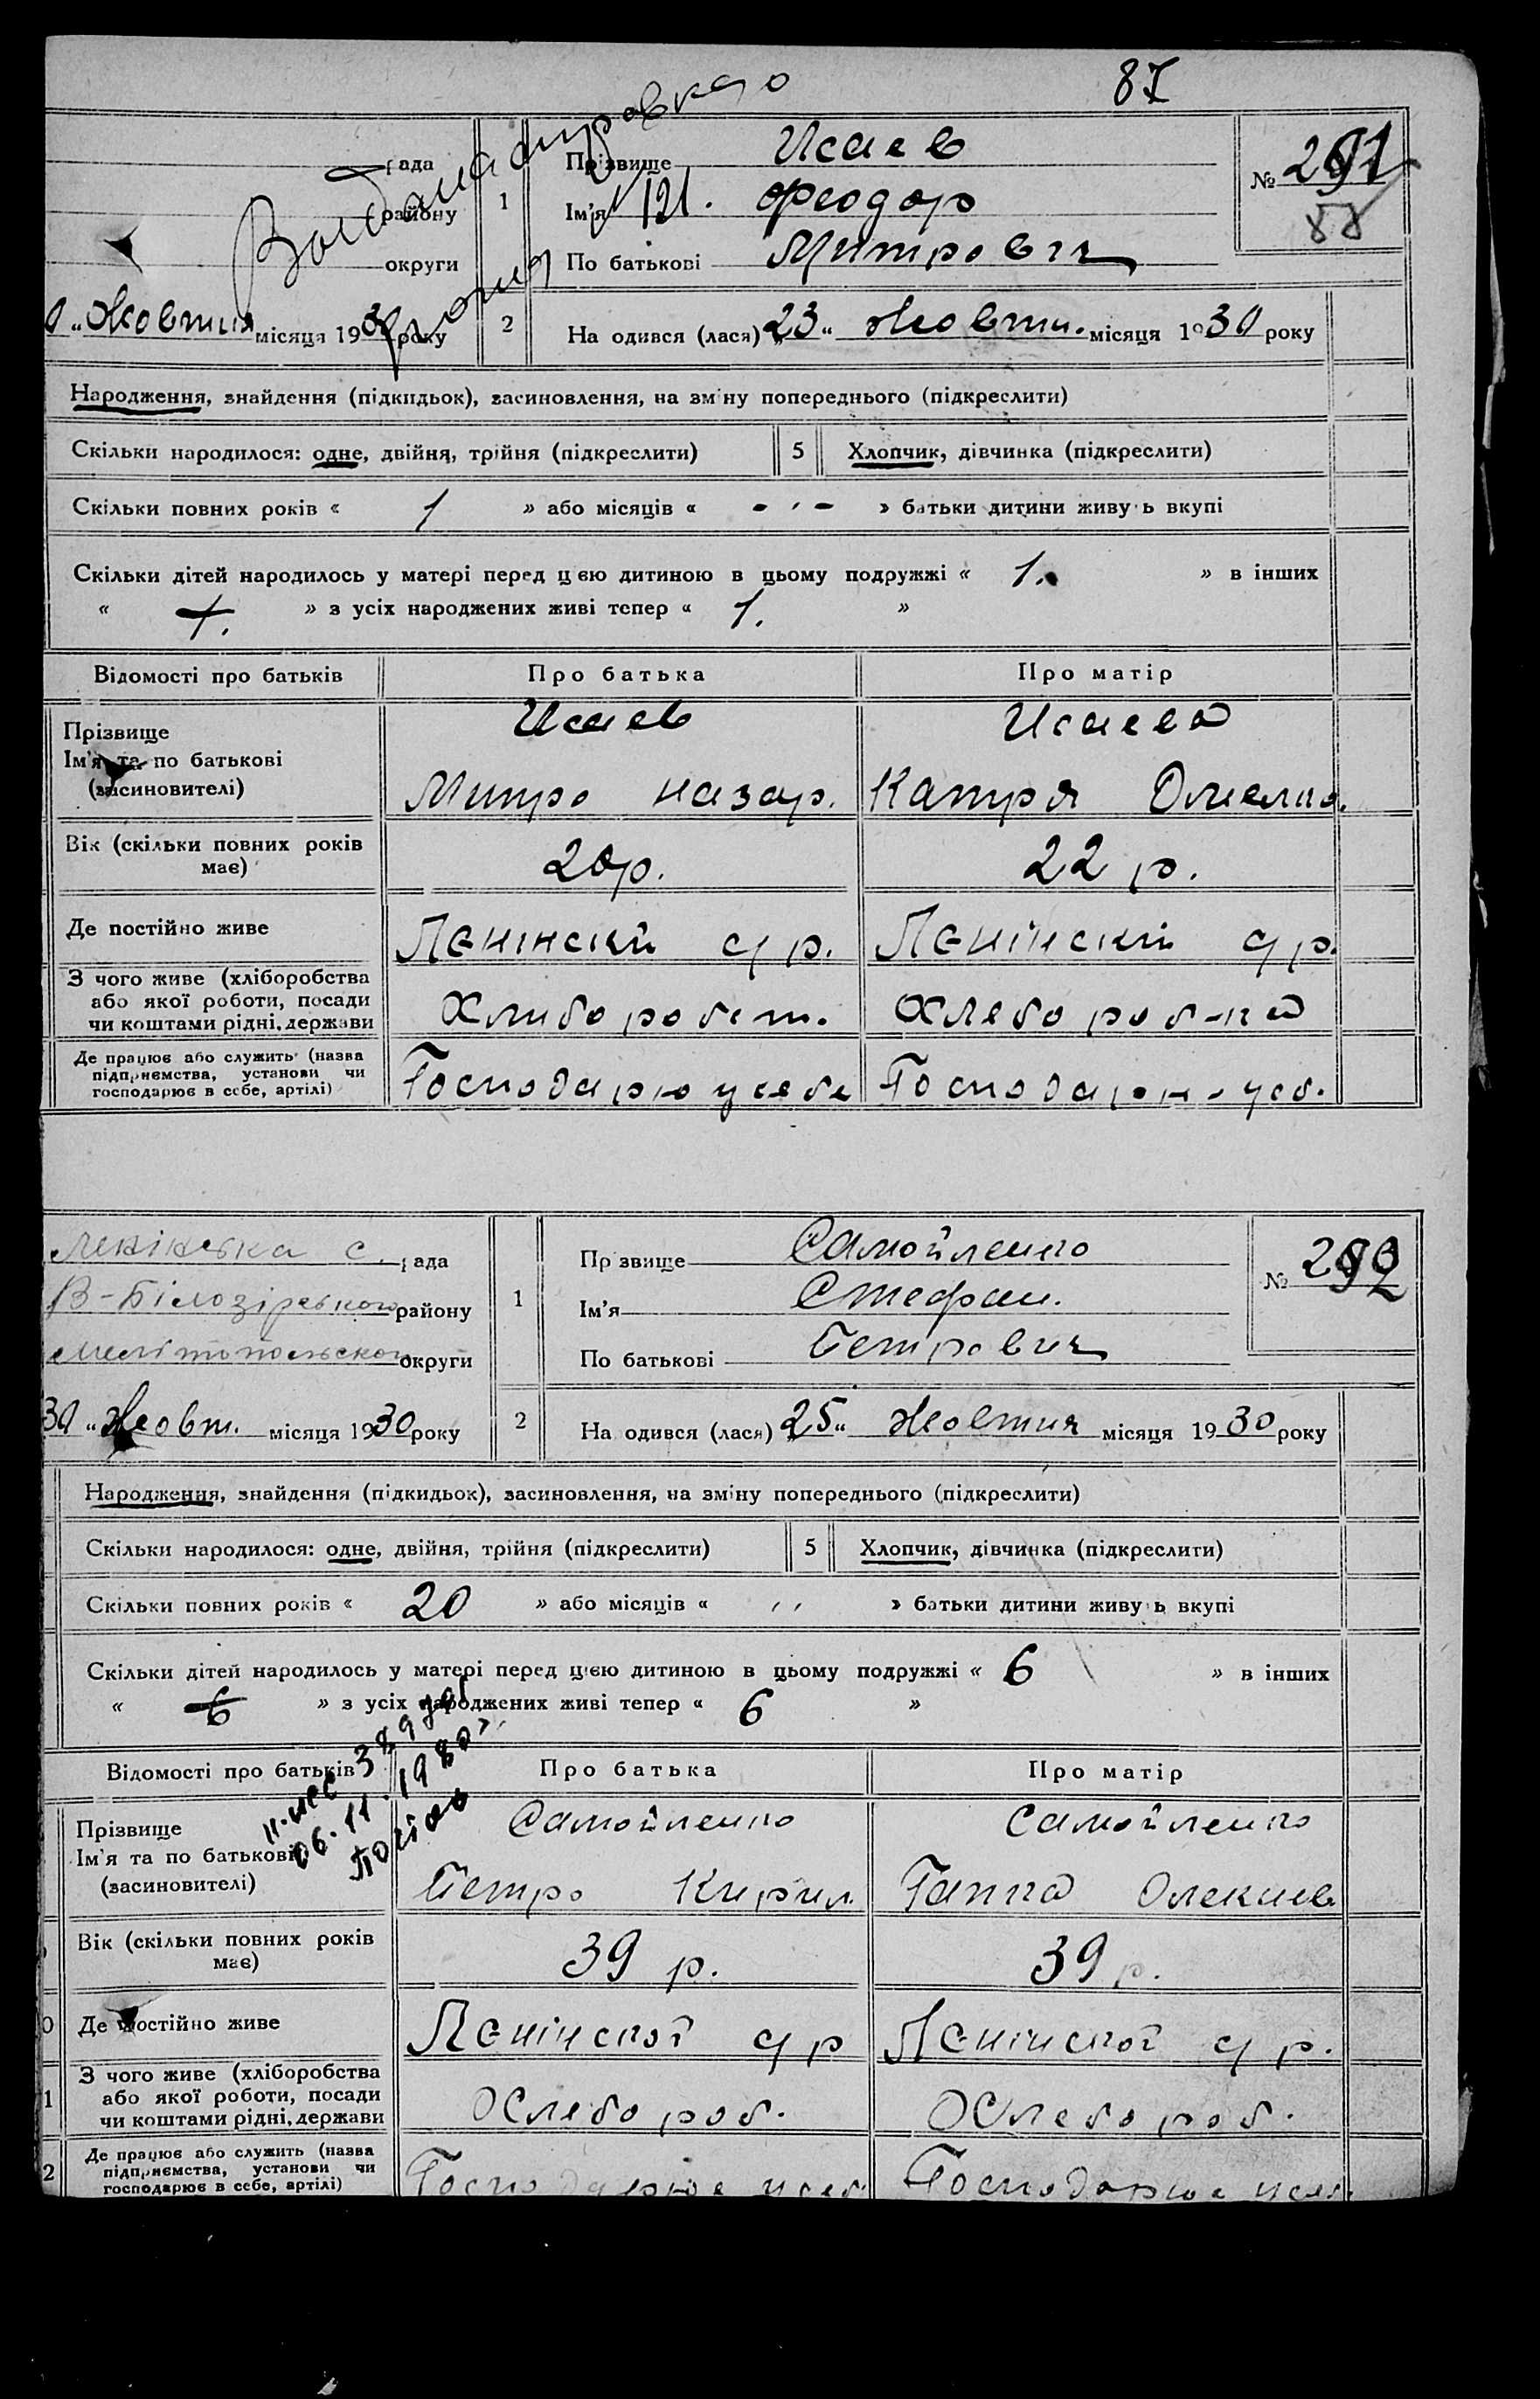 87
рада
Прізвище Исаев
№ 291
району
1
Ім'я Феодор
88
округи
По батькові Митрович
" Жовтня місяця 1930 року
2
На одився (лася) 23 " Жовтн. місяця 1930 року
Народження, знайдення (підкидьок), засиновлення, на зміну попереднього (підкреслити)
Скільки народилося: одне, двійня, трійня (підкреслити) 5 Хлопчик, дівчинка (підкреслити)
Скільки повних років « 1 » або місяців « - ' - » батьки дитини живуть вкупі
Скільки дітей народилось у матері перед цією дитиною в цьому подружжі « 1. » в інших
« 1. » з усіх народжених живі тепер « 1. »
Відомості про батьків Про батька Про матір
Прізвище Исаев Исаева
Ім'я та по батькові
(засиновителі) Митро Назар. Катря Омелья.
Вік (скільки повних років
має) 20 р. 22 р.
Де постійно живе Ленінскй с/р. Ленінскій с/р.
З чого живе (хліборобства
або якої роботи, посади
чи коштами рідні, держави Хлибороб
Де працює або служить (назва
підприємства, установи чи
господарює в себе, артілі) Господарю у себе Господарю - у себ.
Ленінська с. рада
Прізвище Самойленко
№ 292
В-Білозірського району
1
Ім'я Стефан.
Мелітопольської округи
По батькові Петрович
30 " Жовт. місяця 1930 року
2
На одився (лася) 25 " Жовтня місяця 1930 року
Народження, знайдення (підкидьок), засиновлення, на зміну попереднього (підкреслити)
Скільки народилося: одне, двійня, трійня (підкреслити) 5 Хлопчик, дівчинка (підкреслити)
Скільки повних років « 20 » або місяців « ' ' » батьки дитини живуть вкупі
Скільки дітей народилось у матері перед цією дитиною в цьому подружжі « 6 » в інших
« 6 » з усіх народжених живі тепер « 6 »
Відомості про батьків Про батька Про матір
Прізвище Самойленко Самойленко
Ім'я та по батькові
(засиновителі) Петро Кирил. Ганна Олексиев
Вік (скільки повних років
має) 39 р. 39 р.
Де постійно живе Ленінскої с/р Ленінскої с/р.
З чого живе (хліборобства
або якої роботи, посади
чи коштами рідні, держави Хлебороб. Хлебороб.
Де працює або служить (назва
підприємства, установи чи
господарює в себе, артілі) Господарює у себ Господарює у себ.